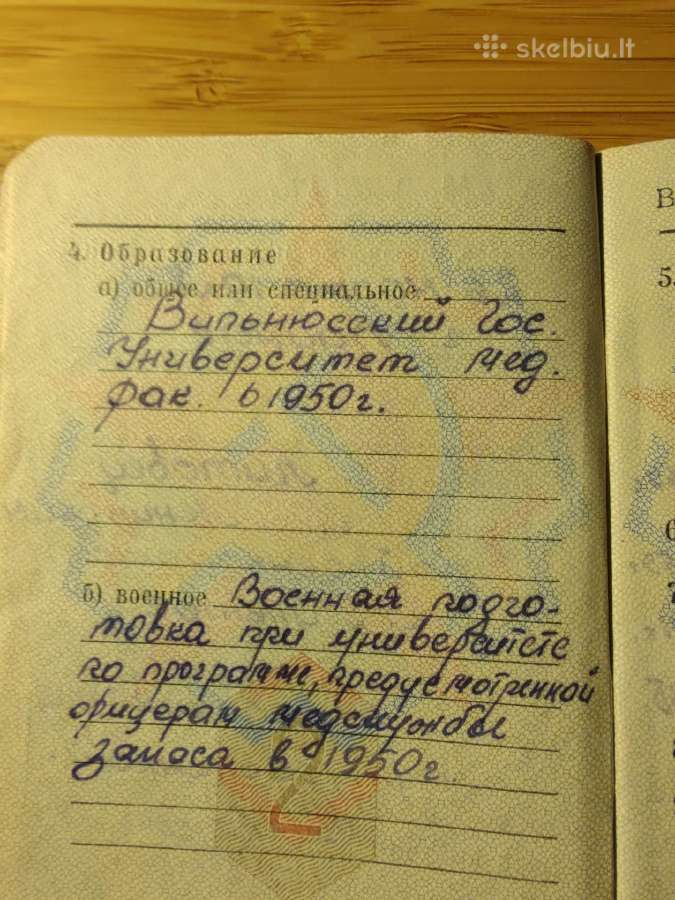 skelbiu.lt
4. Образование
а) общее или специальное
Вильнюсский Гос.
Университет мед.
фак. в 1950г.
б) военное Военная подго-
товка при университете
по программе, предусмотренной
офицерам медслужбы
запаса в 1950г.
В
5.
6